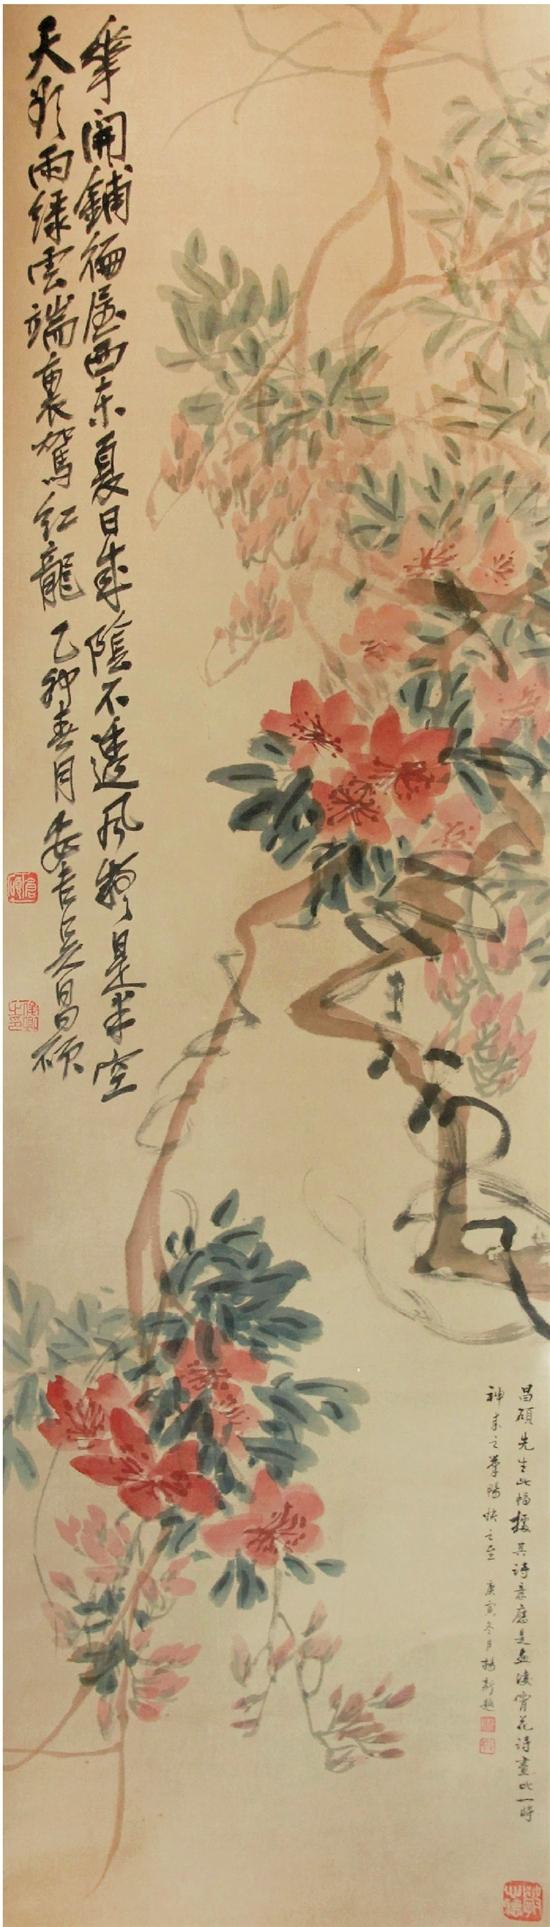 華開鋪徧屋西東夏日成陰不透風疑是半空
天欲雨綠雲端裏駕紅龍 乙卯春月安吉吳昌碩
昌碩先生此幅據其詩意應是畫凌霄花詩畫此一時
神來之筆暢快之至 庚寅冬月